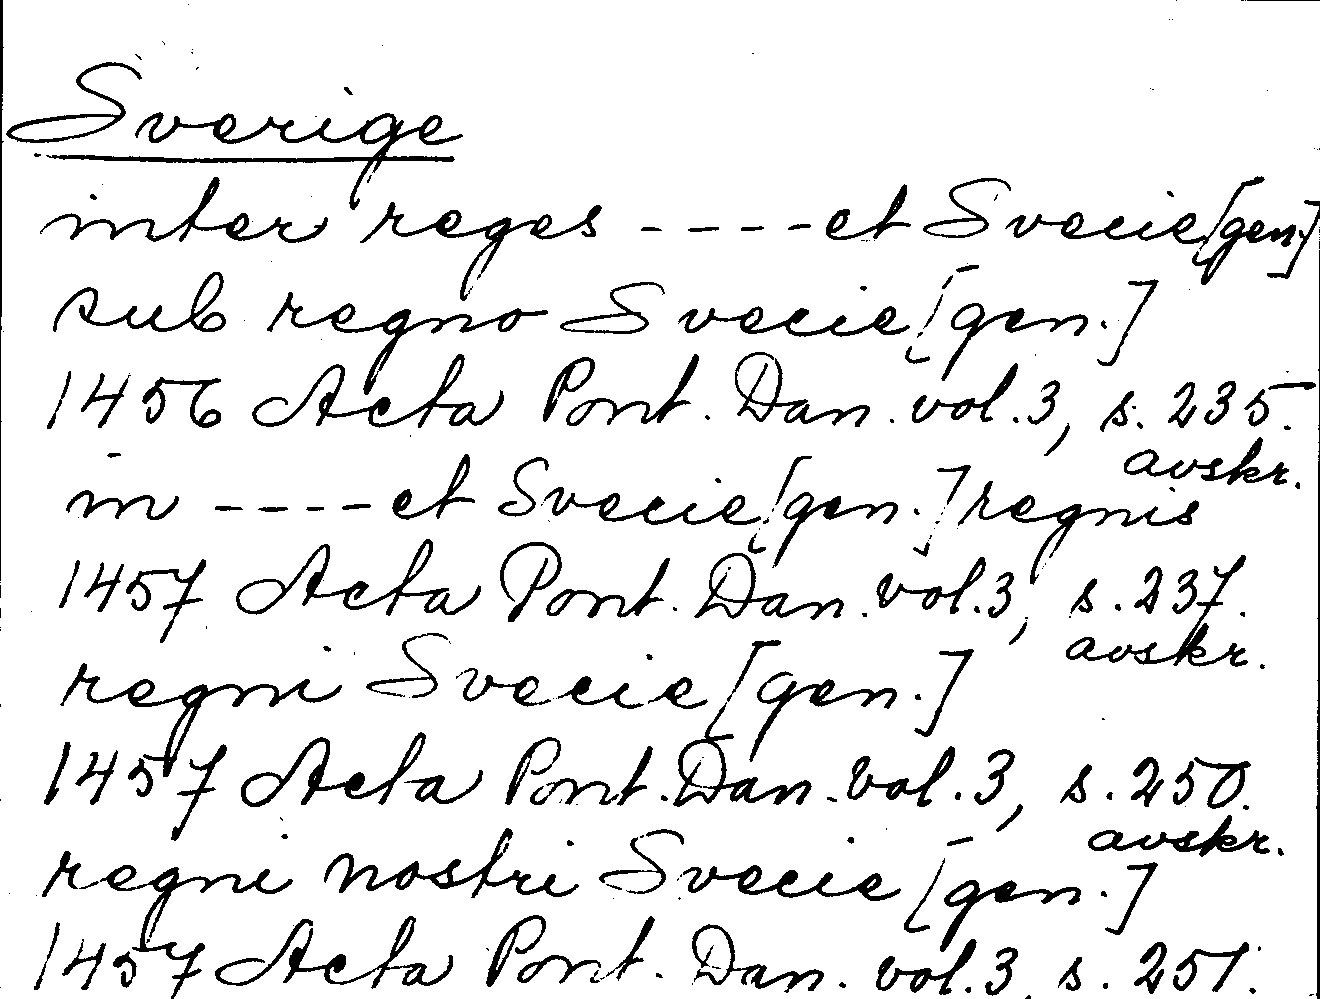 Sverige
inter reges ---- et Svecie [gen.]
sub regno Svecie [gen.]
1456 Acta Pont. Dan. vol. 3, s. 235.
avskr.
in ---- et Svecie [gen.] regnis
1457 Acta Pont. Dan. vol. 3, s. 237.
avskr.
regni Svecie [gen.]
1457 Acta Pont. Dan. vol. 3, s. 250.
avskr.
regni nostri Svecie [gen.]
1457 Acta Pont. Dan. vol. 3, s. 251.